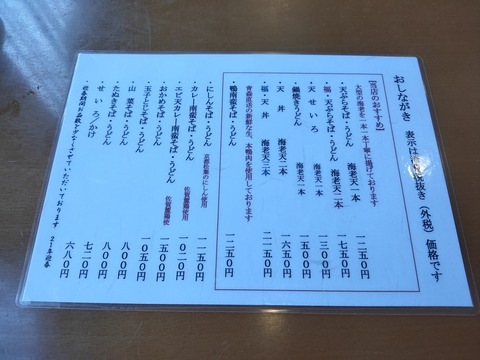 おしながき 表示は 抜き（外税）価格です
【当店のおすすめ】
大型の海老を一本一本丁寧に揚げております
・天ぷらそば・うどん 海老天一本 一二五〇円
・福・天ぷらそば・うどん 海老天二本 一七五〇円
・天せいろ 海老天一本 一三〇〇円
・鍋焼きうどん 海老天一本 一五〇〇円
・天丼 海老天二本 一六五〇円
・福・天丼 海老天三本 二一五〇円
青森直送の新鮮な生、本鴨肉を使用しております
・鴨南蛮そば・うどん 一二五〇円
・にしんそば・うどん 京都松葉のにしん使用 一一五〇円
・カレー南蛮そば・うどん 一〇二〇円
・エビ天カレー南蛮そば・うどん 一五〇〇円
・おかめそば・うどん 一〇五〇円
・玉子とじそば・うどん 八〇〇円
・山菜そば・うどん 八〇〇円
・たぬきそば・うどん 七二〇円
・せいろ／かけ 六八〇円
・迎春期間お品数を少なくさせていただいております 21年迎春